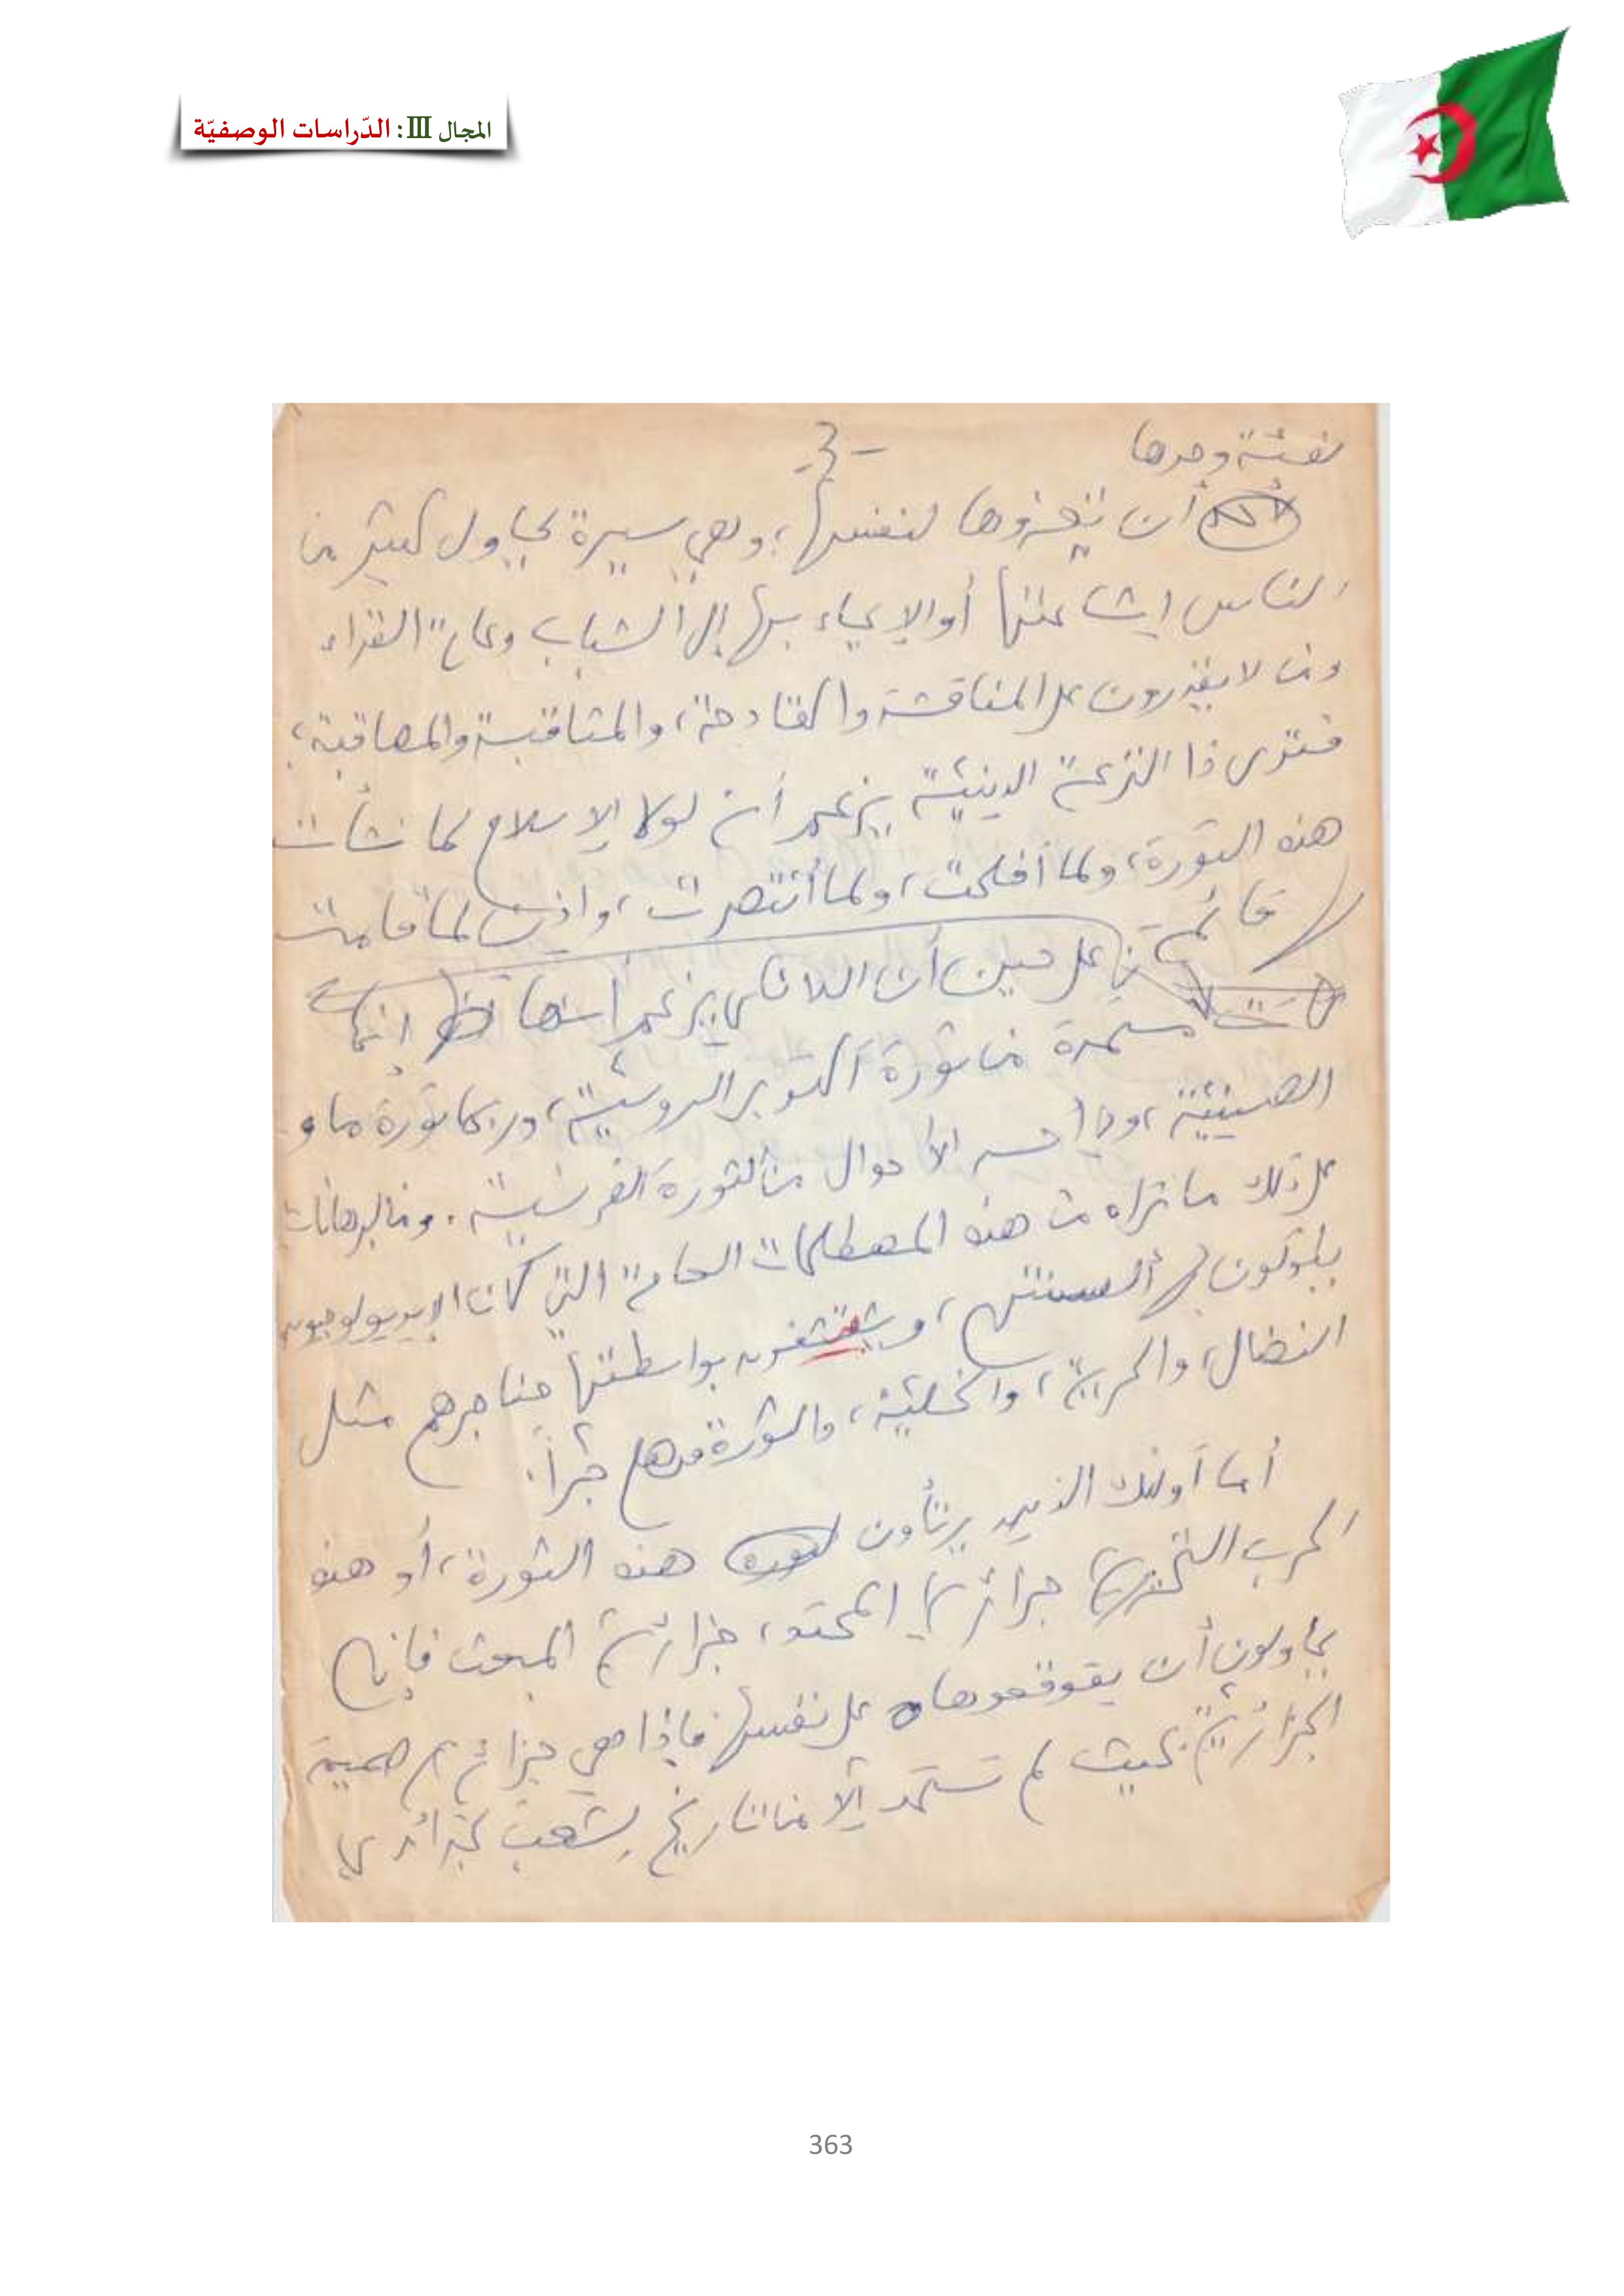 المجال III: الدّراسات الوصفيّة
-3-
لفئة وحدها
أن تعزوها لنفسها؛ وهي سيرة يحاول كثير من
الناس إشاعتها أو الإيحاء بها إلى الشباب وعامة القراء
ممن لا يقدرون على المناقشة والمقادحة، والمثاقبة والمعاقبة؛
فترى ذا النزعة الدينية يزعم أن لولا الإسلام لما نشأت
هذه الثورة، ولما أفلحت، ولما انتصرت، وإذن لما قامت
لها قائمة؛ على حين أن اللائكي يزعم أنها إنما
مستمدة من ثورة أكتوبر الروسية، وربما ثورة ماو
الصينية، وفي أحسن الأحوال من الثورة الفرنسية. ومن البرهانات
على ذلك ما نراه من هذه المصطلحات العامة التي كان الإيديولوجيون
يلوكون بها ألسنتهم، و بواسطتها حناجرهم مثل
النضال، والحرية، والخلية، والثورة وهلم جراً.
أما أولئك الذين يرتأون هذه الثورة، أو هذه
الحرب التحريرية جزائرية المحتد، جزائرية المبعث فإنهم
يحاولون أن يقوقعوها على نفسها فإذا هي جزائرية صميمة
الجزائرية بحيث لم تستمد إلا من تاريخ الشعب الجزائري
363